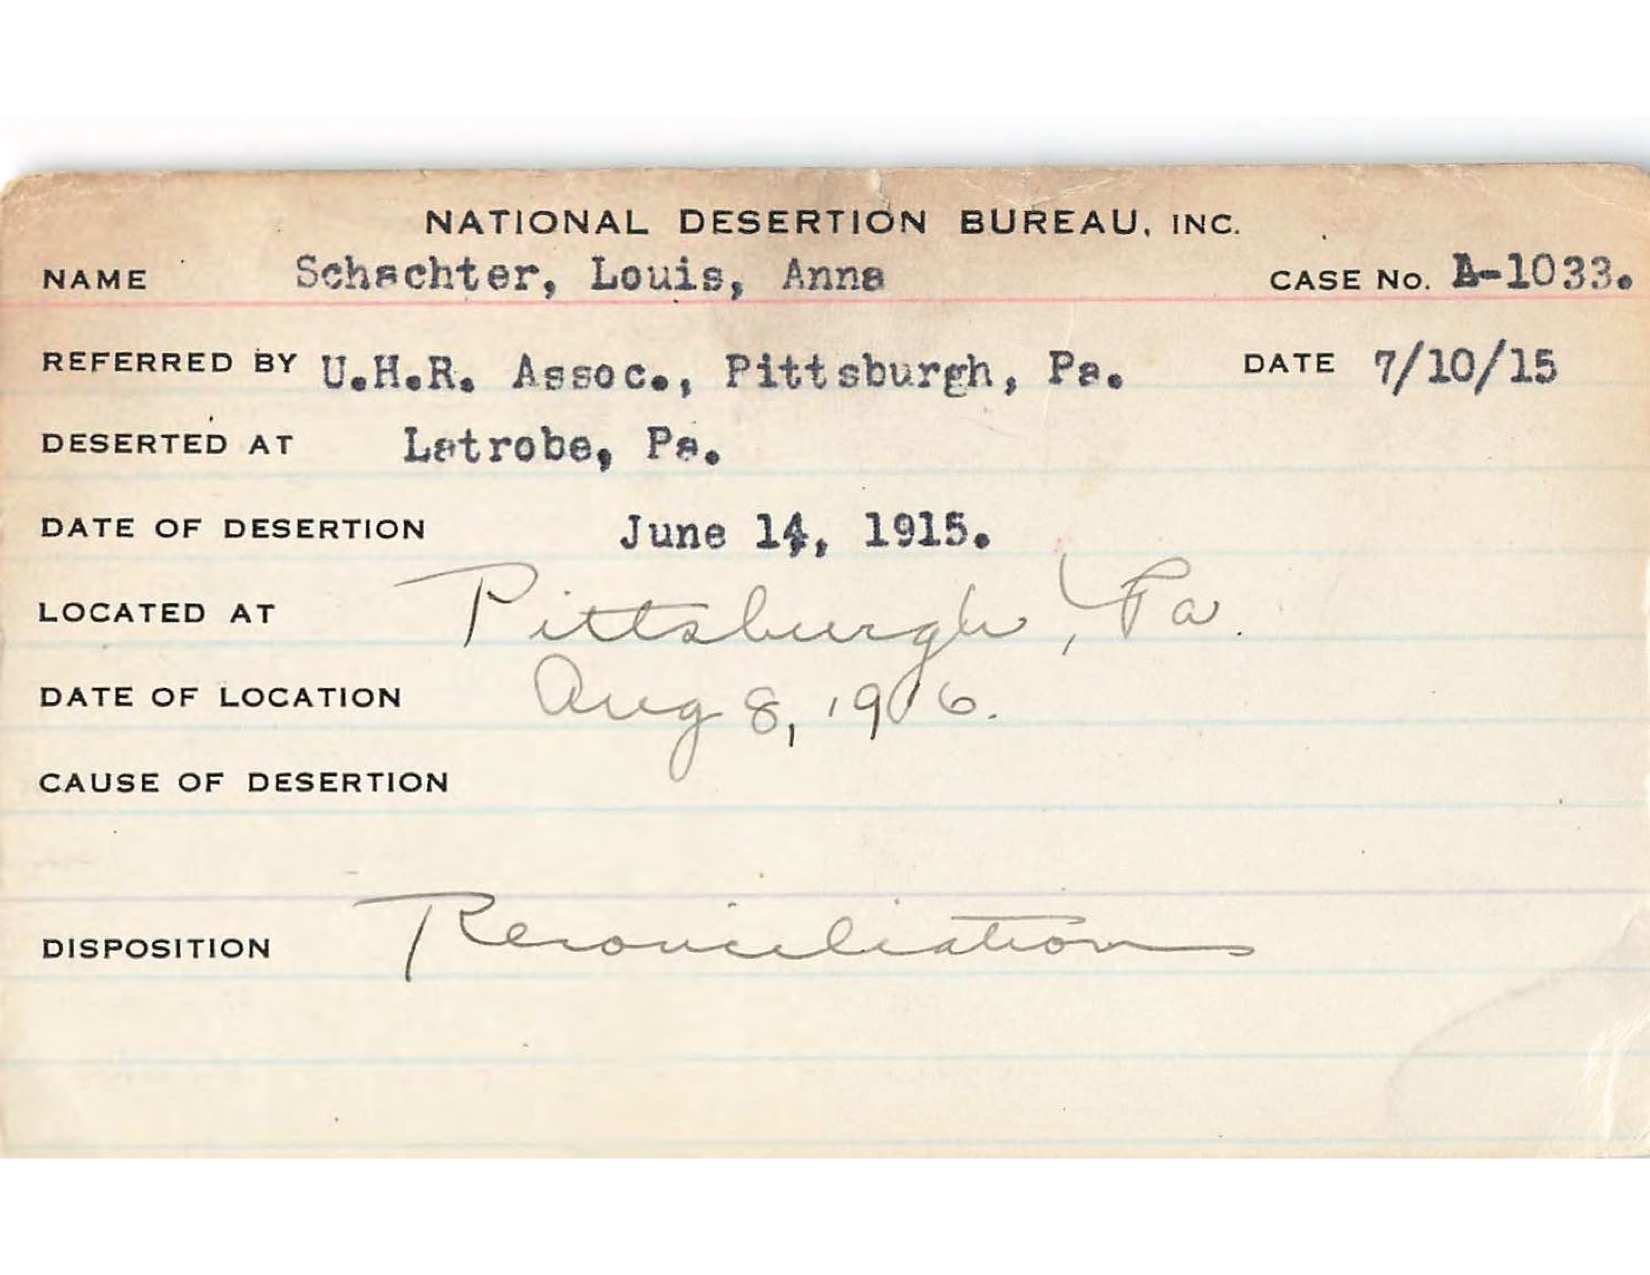 NATIONAL DESERTION BUREAU, INC.
NAME Schachter, Louis, Anna CASE No. A-1033.
REFERRED BY U.H.R. Assoc., Pittsburgh, Pa. DATE 7/10/15
DESERTED AT Latrobe, Pa.
DATE OF DESERTION June 14, 1915.
LOCATED AT Pittsburgh, Pa.
DATE OF LOCATION Aug 8, 1916.
CAUSE OF DESERTION
DISPOSITION Reconciliation